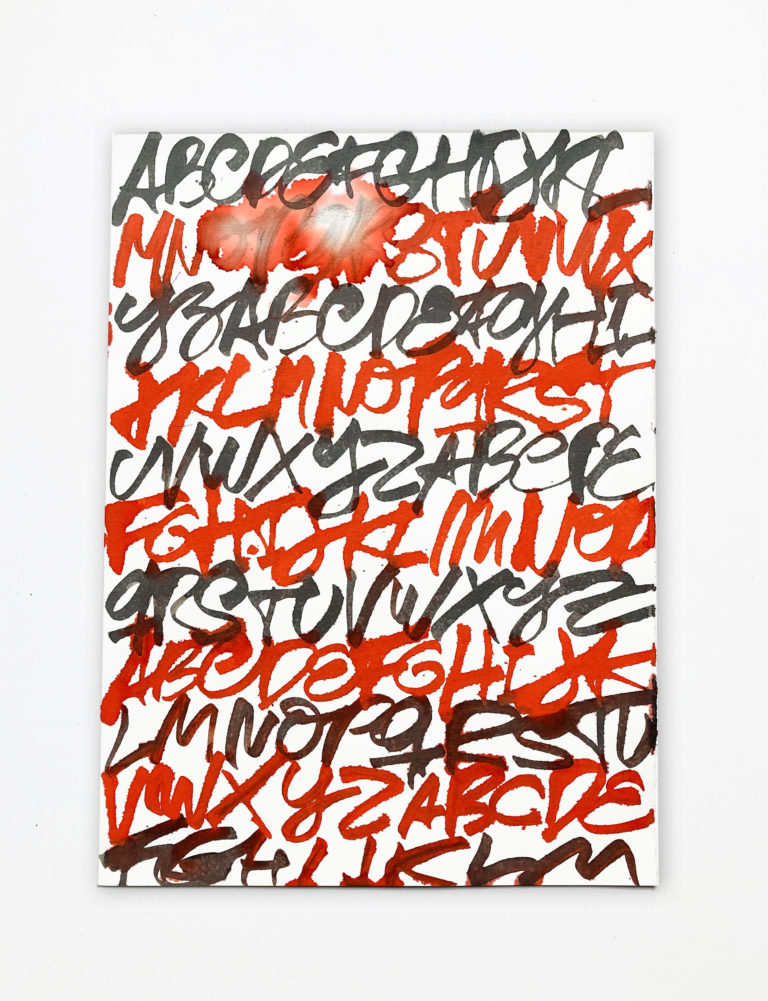 ABCDEFGHIJKL
MNOPQRSTUVWX
YZABCDEFGHI
JKLMNOPQRST
UVWXYZABCDE
FGHIJKLMNOP
QRSTUVWXYZ
ABCDEFGHIJK
LMNOPQRSTU
VWXYZABCDE
FGHIJKLM